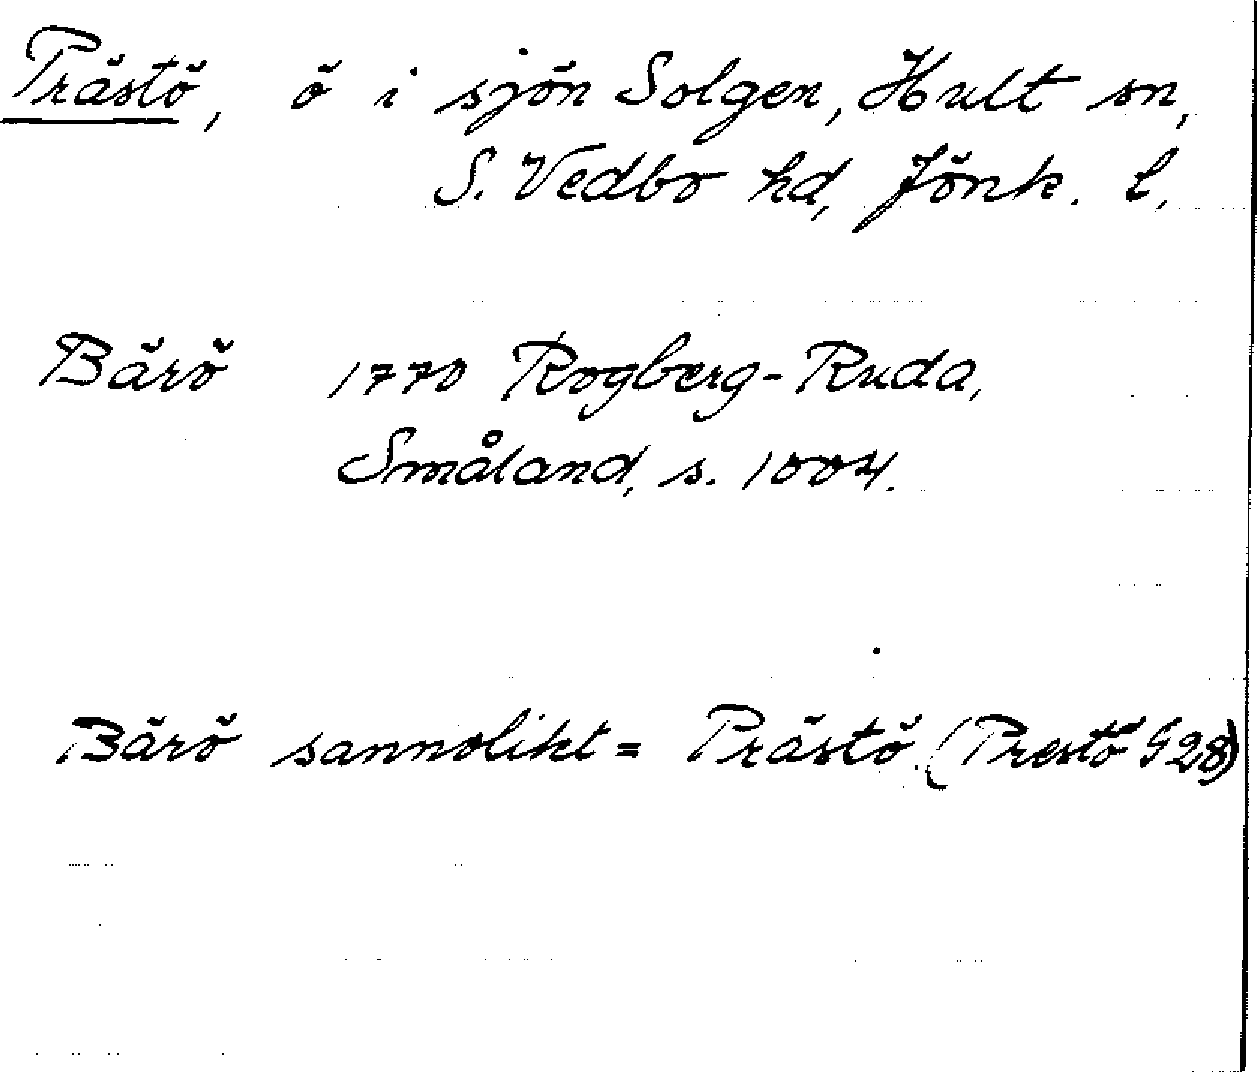 Prästö, ö i sjön Solgen, Hult sn,
S. Vedbo hd, Jönk. l.
Bärö 1770 Rogberg-Ruda,
Småland, s. 1004.
Bärö sannolikt = Prästö. (Prestö G28)